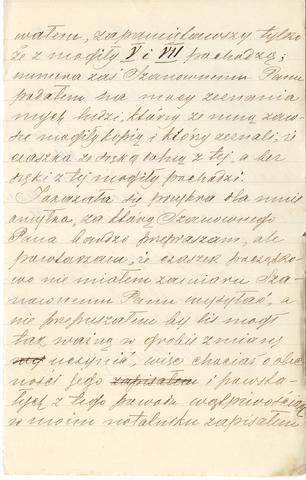 wałem, zapamiętawszy tylko
że z mogiły V i VII pochodzą;
numera zaś Szanownemu Panu
podałem na mocy zeznania
mych ludzi, którzy ze mną zaw-
sze mogiły kopią i którzy zeznali, że
czaszka ze szczęką dolną z tej, a bez
szczęki z tej mogiły pochodzi.
Zaszła się przykra dla mnie
omyłka, za którą Szanownego
Pana bardzo przepraszam, ale
powtarzam, że czaszek początko-
wo nie miałem zamiaru Sza-
nownemu Panu wysyłać, a
nie przypuszczałem by lis mógł
tak ważną w grobie zmianę
uczynić, więc chociaż o obec-
ność jego zapisałem i powsta-
łych z tego powodu wątpliwościach
w moim notatniku zapisałem